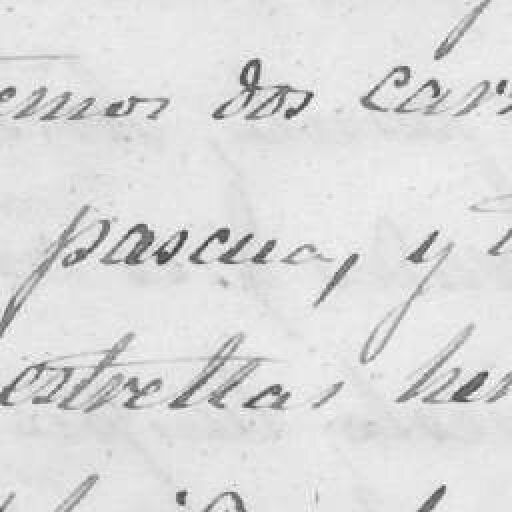 emos dos car
pascua, y
estrellas her